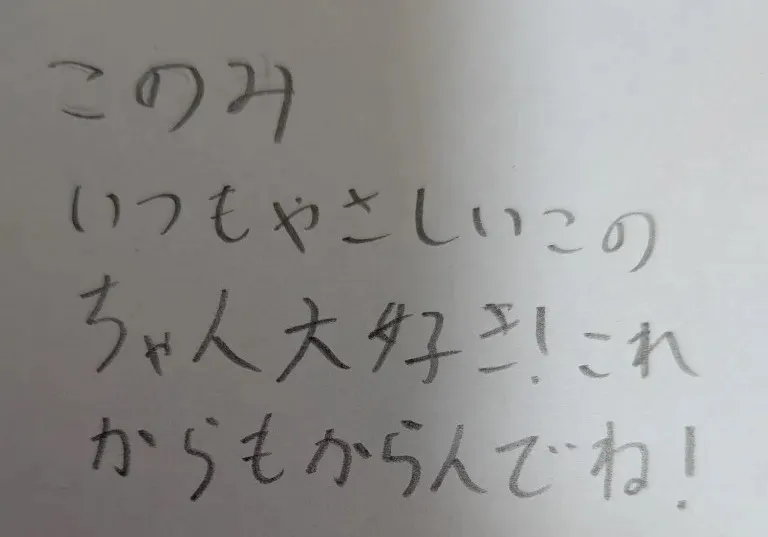 このみ
いつもやさしいこの
ちゃん大好き!これ
からもからんでね!